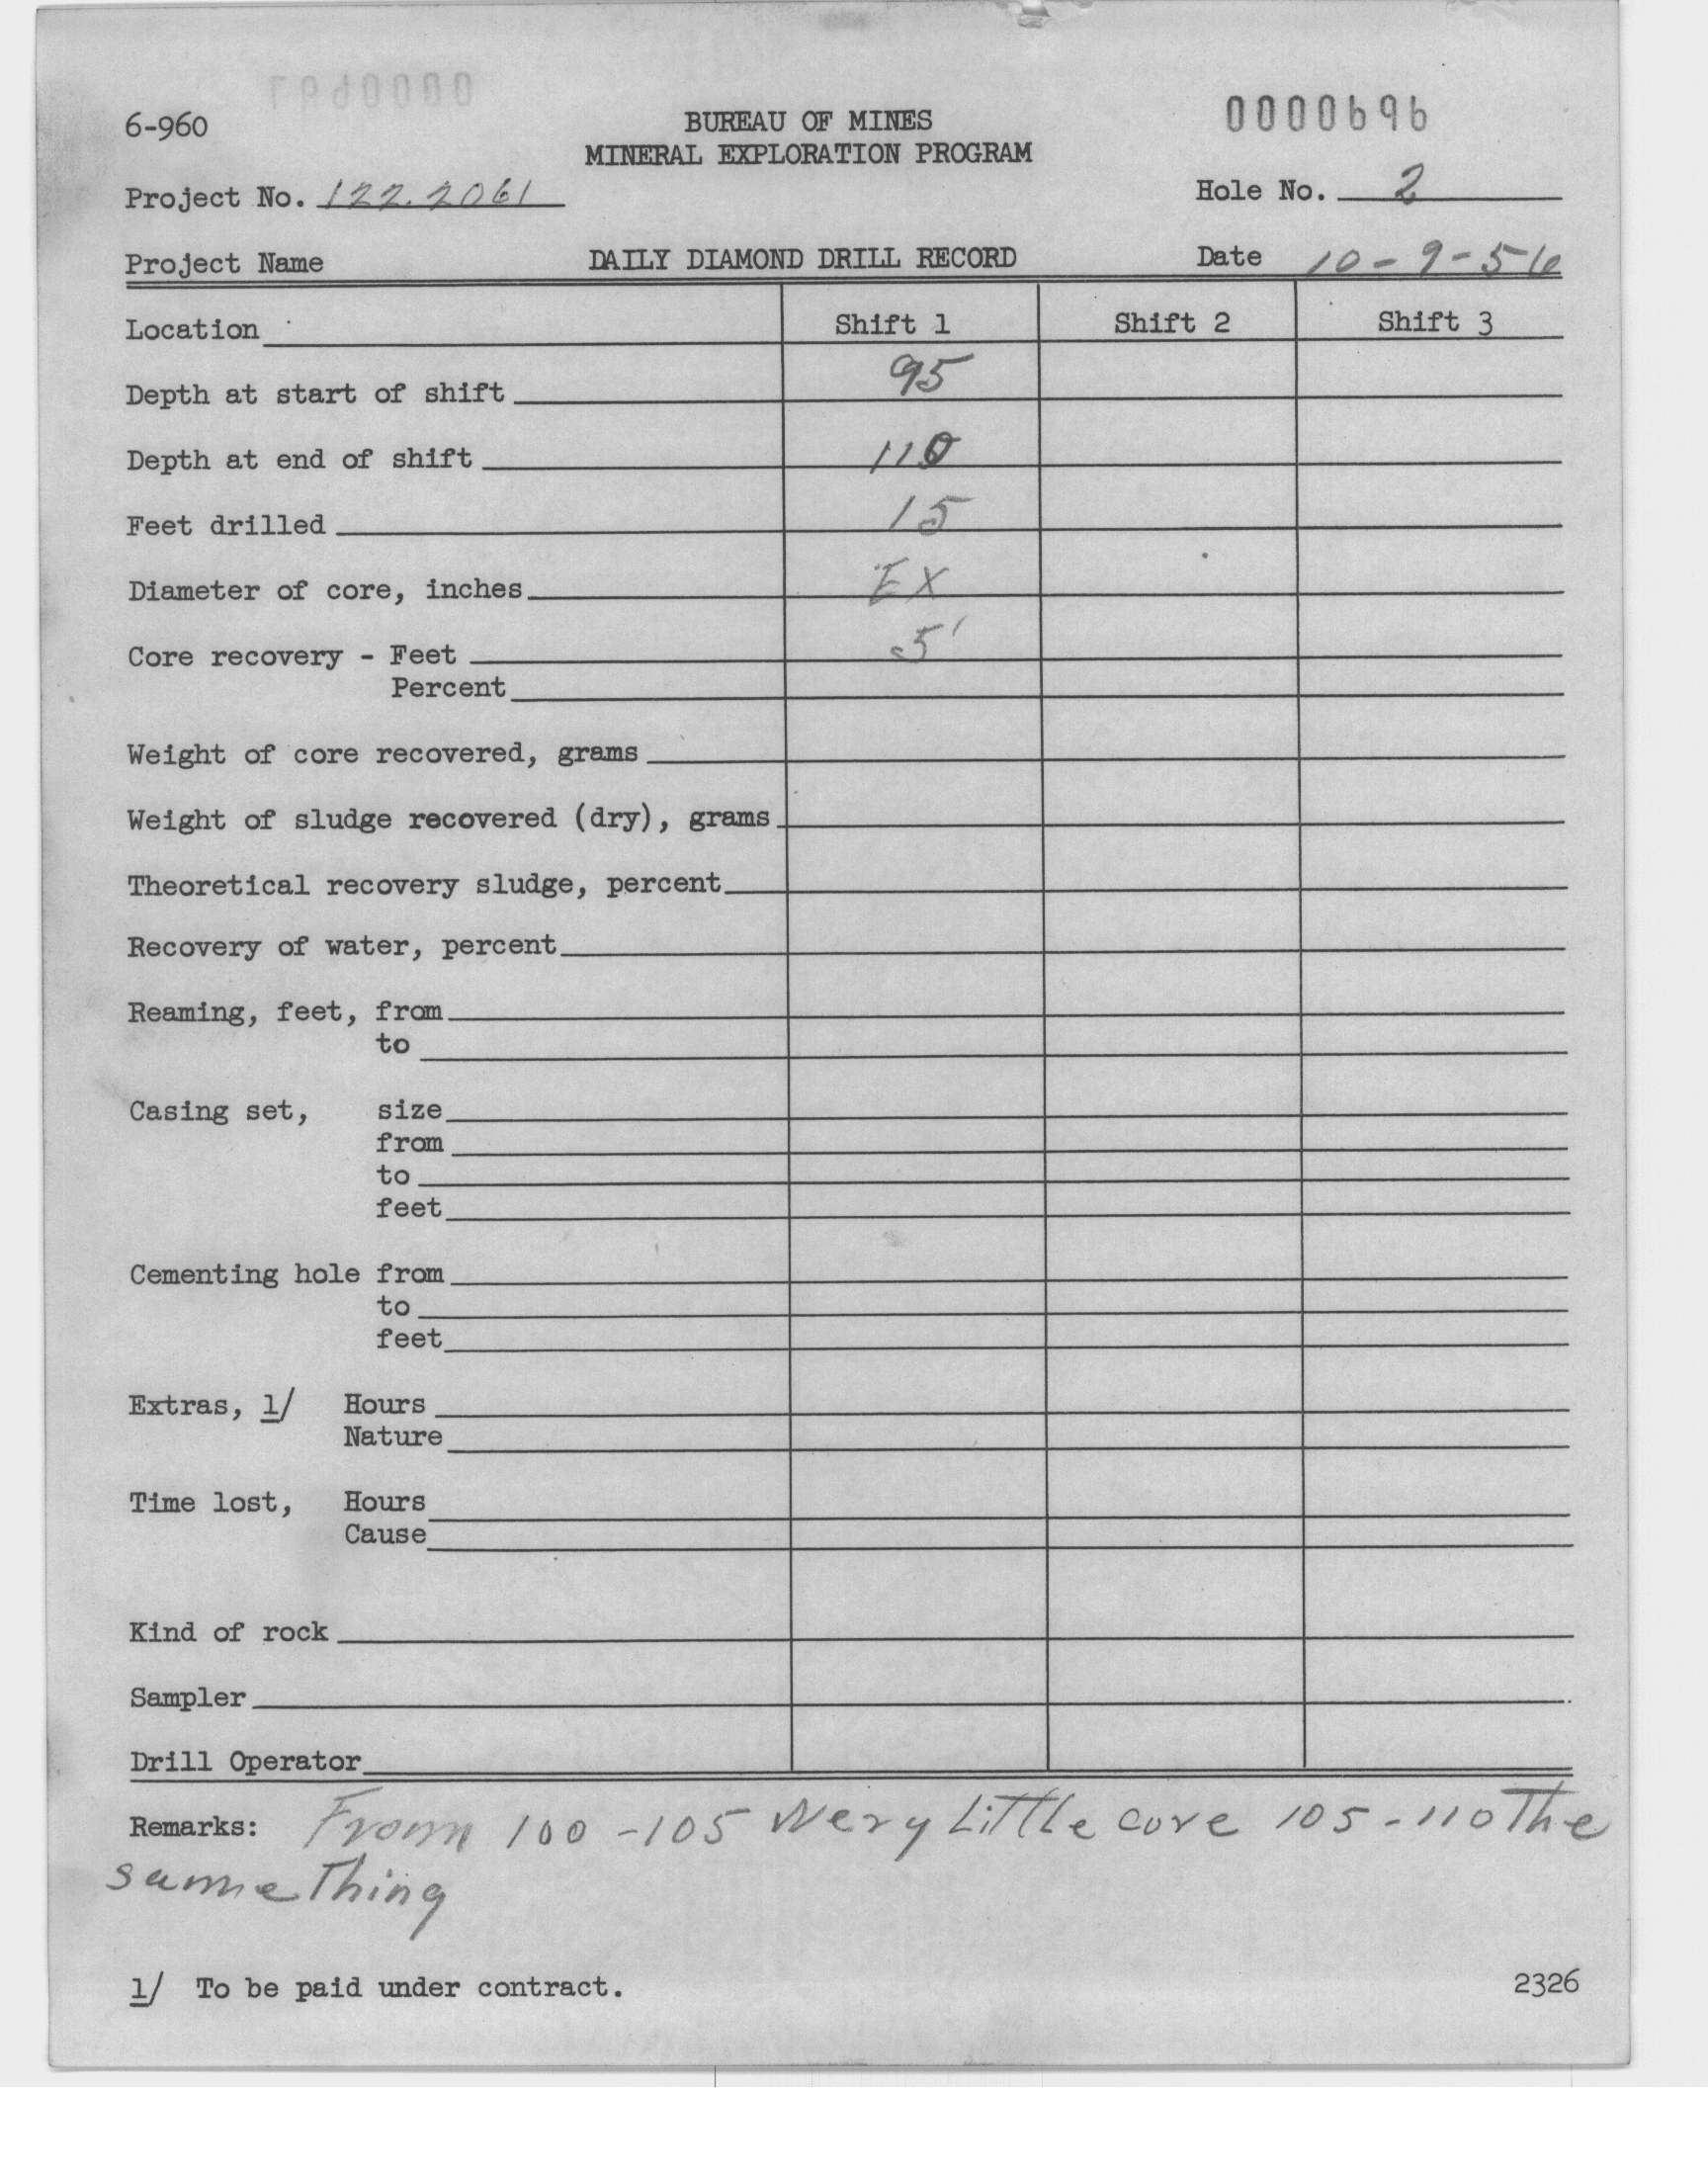 6-960
BUREAU OF MINES
0000696
MINERAL EXPLORATION PROGRAM
Project No. 122.2061
Hole No. 2
Project Name
DAILY DIAMOND DRILL RECORD
Date 10-9-56
Location Shift 1 Shift 2 Shift 3
Depth at start of shift 95
Depth at end of shift 110
Feet drilled 15
Diameter of core, inches EX
Core recovery - Feet 5'
Percent
Weight of core recovered, grams
Weight of sludge recovered (dry), grams
Theoretical recovery sludge, percent
Recovery of water, percent
Reaming, feet, from
to
Casing set, size
from
to
feet
Cementing hole from
to
feet
Extras, 1/ Hours
Nature
Time lost, Hours
Cause
Kind of rock
Sampler
Drill Operator
Remarks: From 100-105 very Little core 105-110 The
same Thing
1/ To be paid under contract.
2326